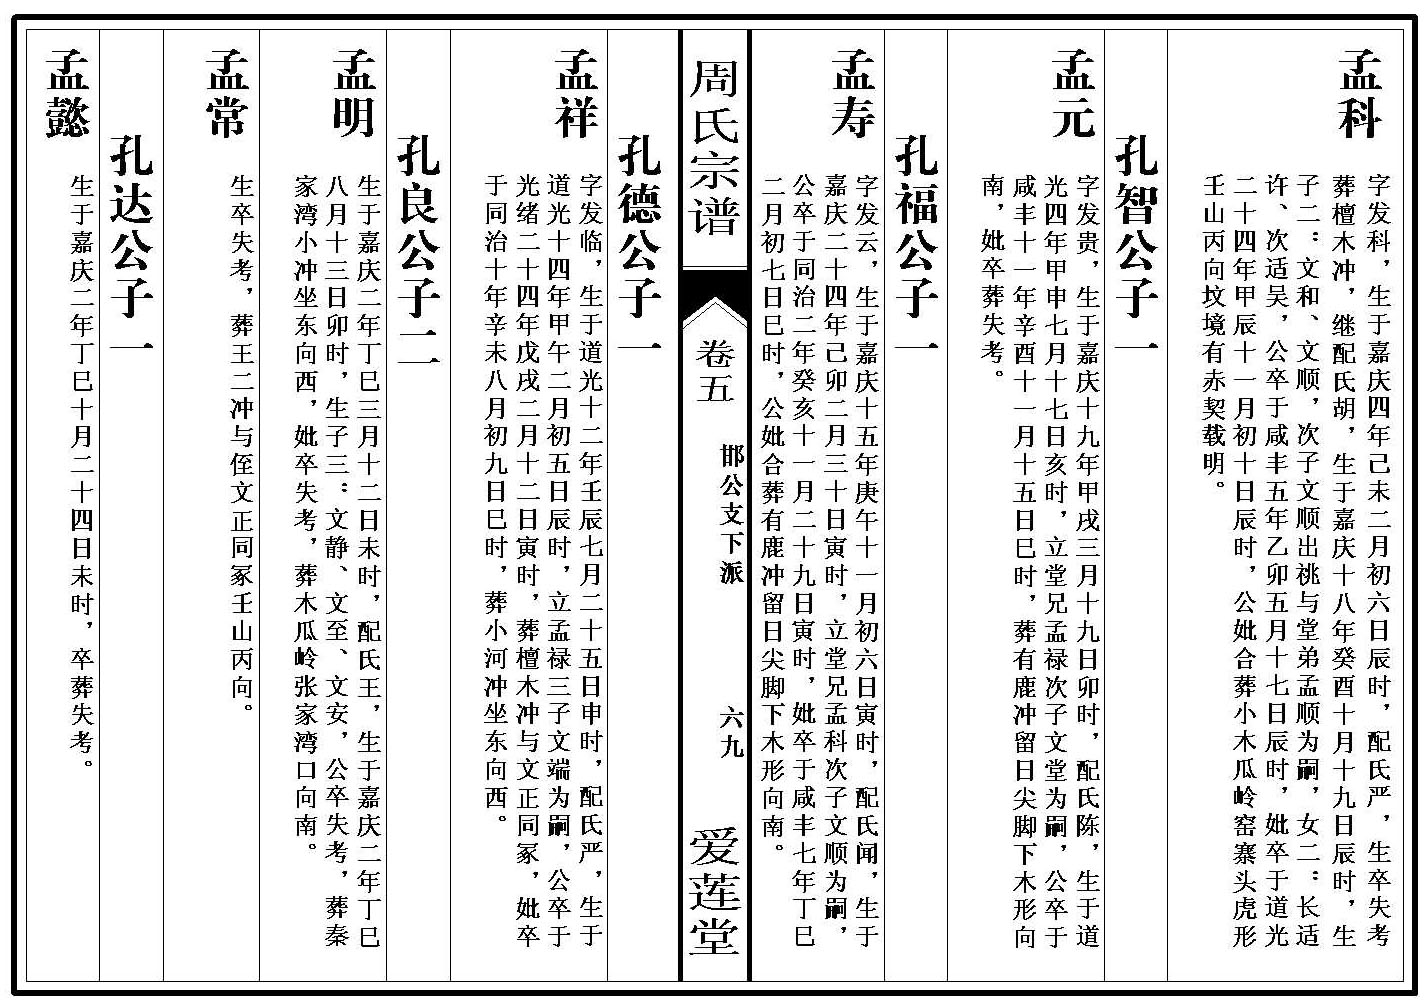 孟科
字发科，生于嘉庆四年己未二月初六日辰时，配氏严，生卒失考
葬檀木冲，继配氏胡，生于嘉庆十八年癸酉十月十九日辰时，生
子二：文和、文顺，次子文顺出祧与堂弟孟顺为嗣，女二：长适
许、次适吴，公卒于咸丰五年乙卯五月十七日辰时，妣卒于道光
二十四年甲辰十一月初十日辰时，公妣合葬小木瓜岭窑寨头虎形
壬山丙向坟境有赤契载明。
孔智公子一
孟元
字发贵，生于嘉庆十九年甲戌三月十九日卯时，配氏陈，生于道
光四年甲申七月十七日亥时，立堂兄孟禄次子文堂为嗣，公卒于
咸丰十一年辛酉十一月十五日巳时，葬有鹿冲留日尖脚下木形向
南，妣卒葬失考。
孔福公子一
孟寿
字发云，生于嘉庆十五年庚午十一月初六日寅时，配氏闻，生于
嘉庆二十四年己卯二月三十日寅时，立堂兄孟科次子文顺为嗣，
公卒于同治二年癸亥十一月二十九日寅时，妣卒于咸丰七年丁巳
二月初七日巳时，公妣合葬有鹿冲留日尖脚下木形向南。
周氏宗谱
卷五
邯公支下派
六九
爱莲堂
孔德公子一
孟祥
字发临，生于道光十二年壬辰七月二十五日申时，配氏严，生于
道光十四年甲午二月初五日辰时，立孟禄三子文端为嗣，公卒于
光绪二十四年戊戌二月十二日寅时，葬檀木冲与文正同冢，妣卒
于同治十年辛未八月初九日巳时，葬小河冲坐东向西。
孔良公子二
孟明
生于嘉庆二年丁巳三月十二日未时，配氏王，生于嘉庆二年丁巳
八月十三日卯时，生子三：文静、文至、文安，公卒失考，葬秦
家湾小冲坐东向西，妣卒失考，葬木瓜岭张家湾口向南。
孟常
生卒失考，葬王二冲与侄文正同冢壬山丙向。
孔达公子一
孟懿
生于嘉庆二年丁巳十月二十四日未时，卒葬失考。